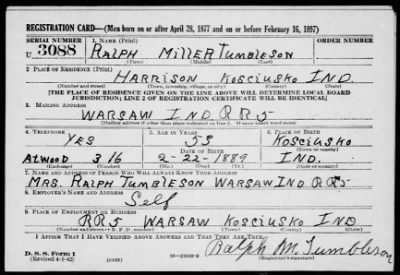 REGISTRATION CARD—(Men born on or after April 28, 1877 and on or before February 16, 1897)
SERIAL NUMBER 1. NAME (Print)
U 3088 RALPH MILLER TUMBLESON
(First) (Middle) (Last)
2. PLACE OF RESIDENCE (Print)
HARRISON KOSCIUSKO IND.
(Number and street) (Town, township, village, or city) (County) (State)
[THE PLACE OF RESIDENCE GIVEN ON THE LINE ABOVE WILL DETERMINE LOCAL BOARD
JURISDICTION; LINE 2 OF REGISTRATION CERTIFICATE WILL BE IDENTICAL]
3. MAILING ADDRESS
WARSAW IND. RR5
[Mailing address if other than place indicated on line 2. If same insert word same]
4. TELEPHONE 5. AGE IN YEARS 6. PLACE OF BIRTH
YES 53 KOSCIUSKO
DATE OF BIRTH (Town or county)
ATWOOD 3 16 2-22-1889 IND.
(Exchange) (Number) (Mo.) (Day) (Yr.) (State or country)
7. NAME AND ADDRESS OF PERSON WHO WILL ALWAYS KNOW YOUR ADDRESS
MRS. RALPH TUMBLESON WARSAW IND RR5
8. EMPLOYER'S NAME AND ADDRESS
Self
9. PLACE OF EMPLOYMENT OR BUSINESS
RR5 WARSAW KOSCIUSKO IND
(Number and street or R. F. D. number) (Town) (County) (State)
I AFFIRM THAT I HAVE VERIFIED ABOVE ANSWERS AND THAT THEY ARE TRUE.
D. S. S. Form 1
(Revised 4-1-42) (over) Ralph M. Tumbleson
(Registrant's signature)